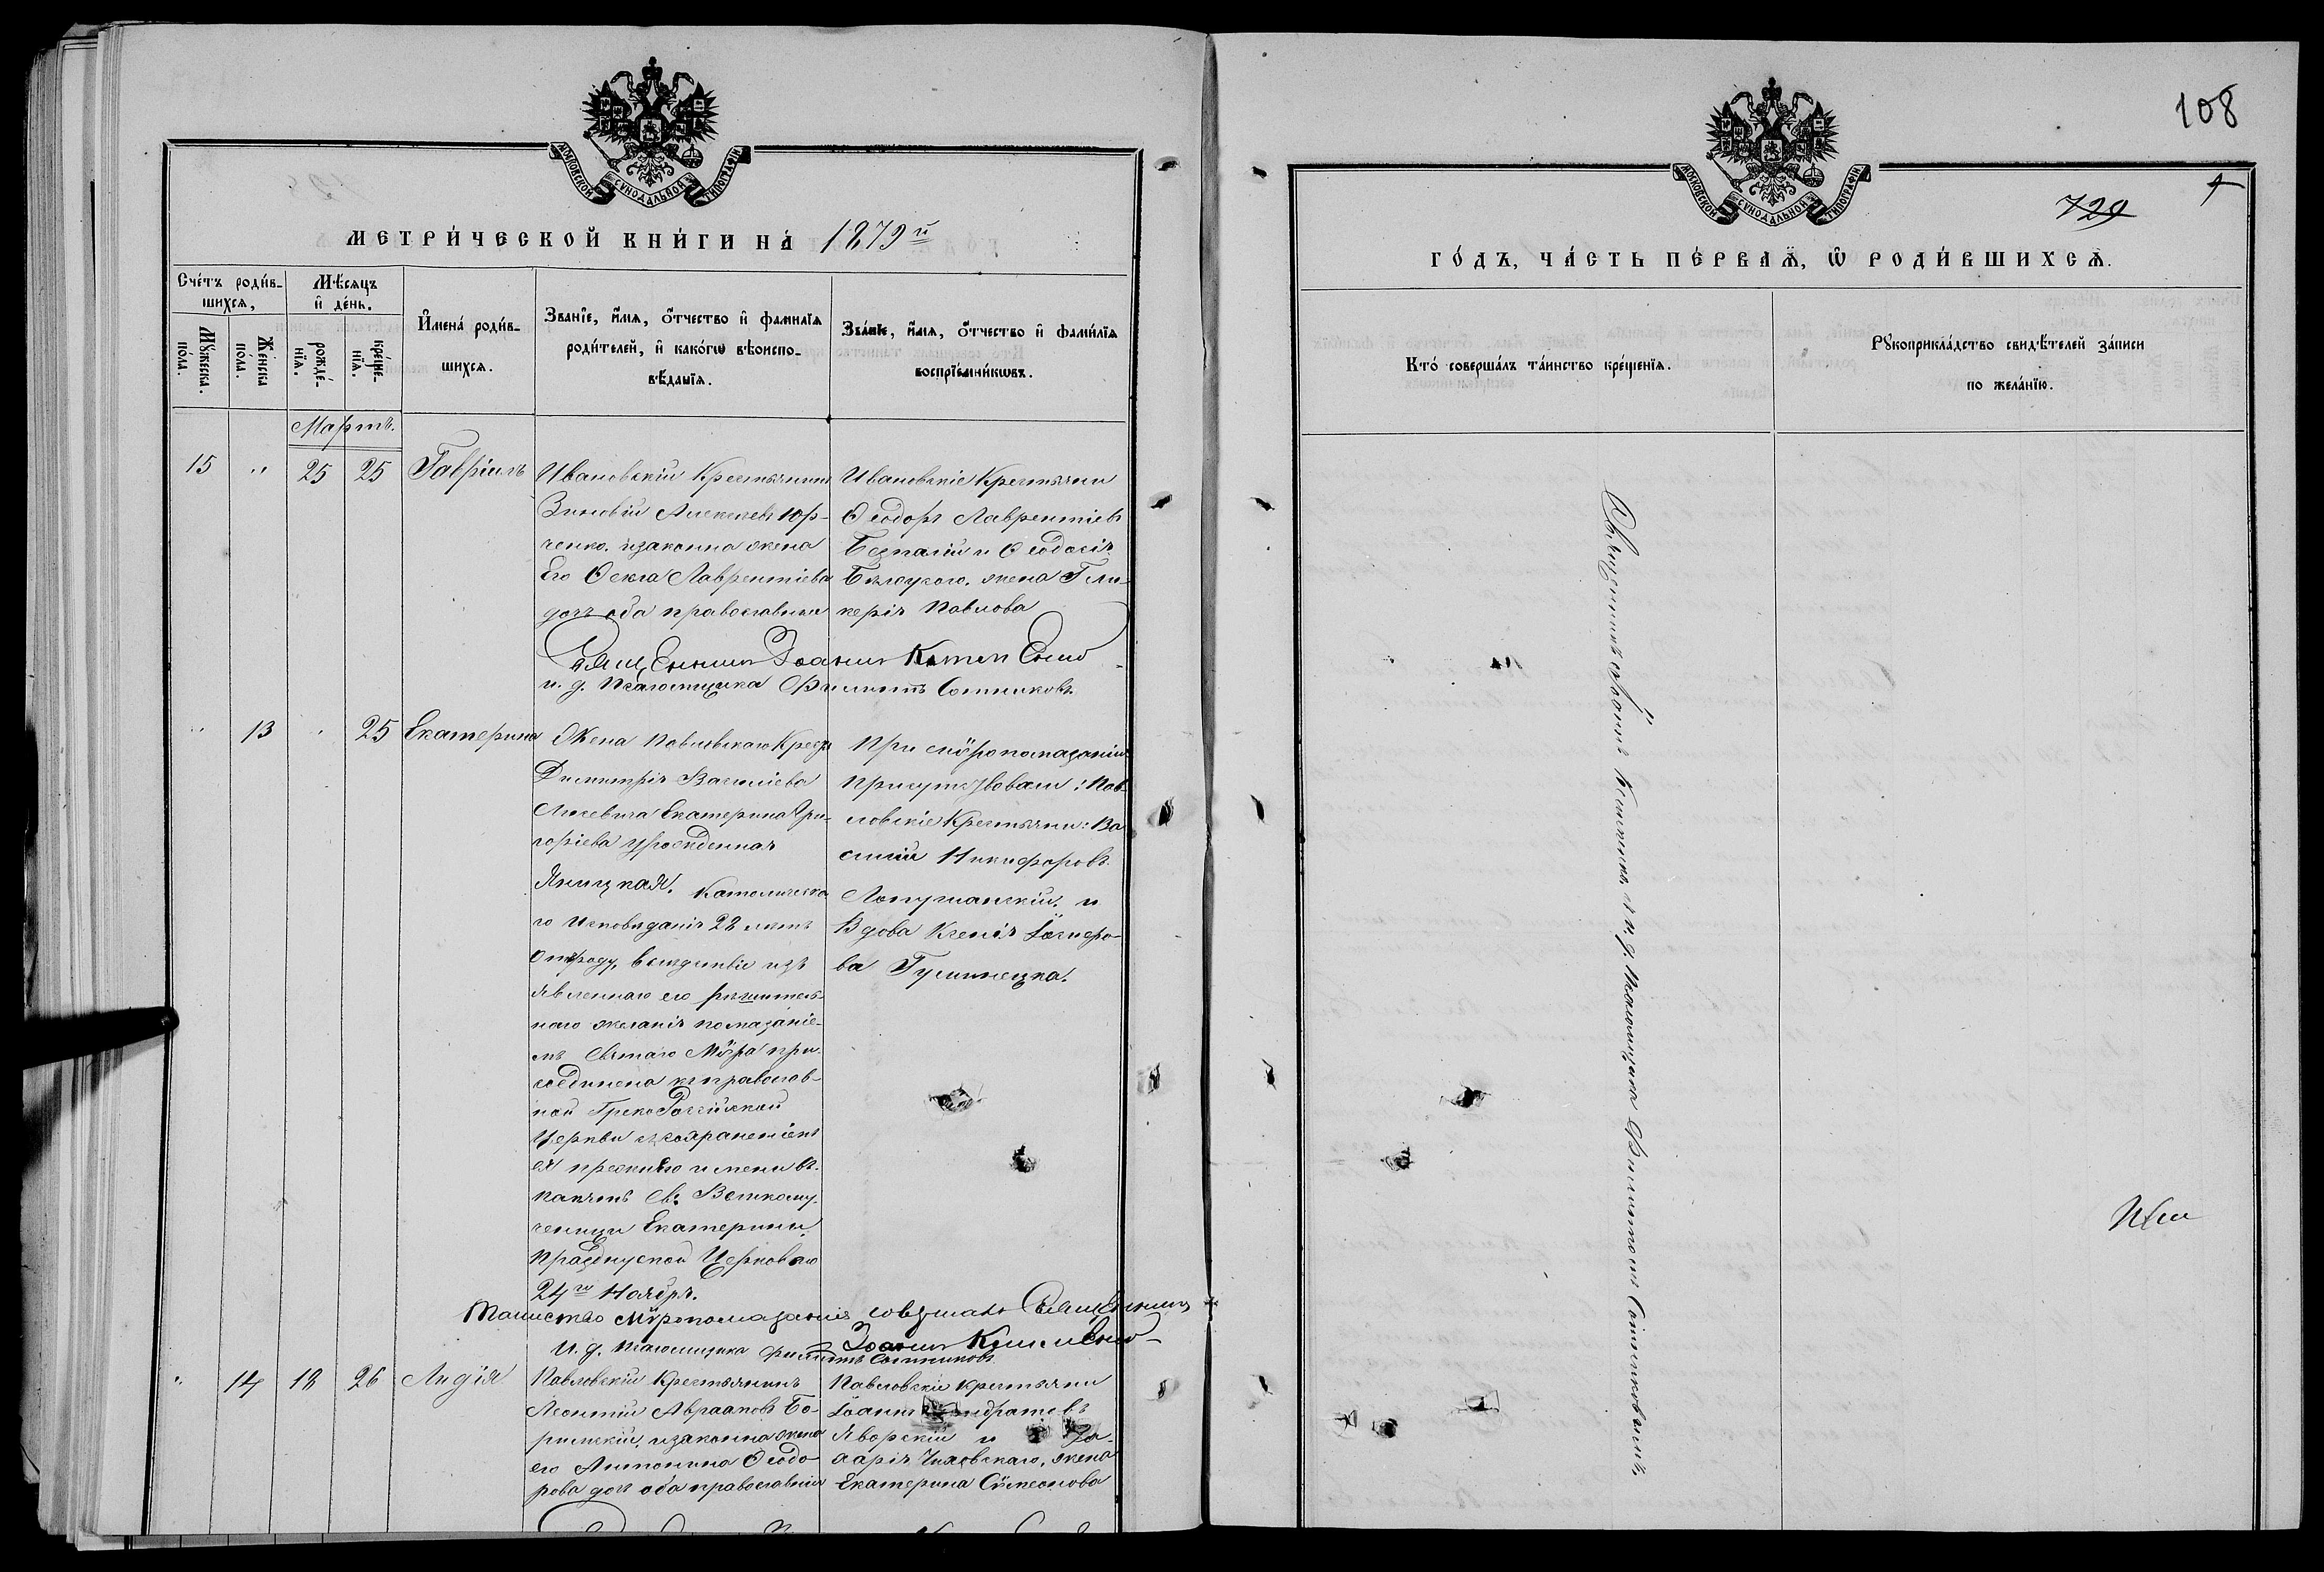 МОСКОВСКОЙ СѴНОДАЛЬНОЙ ТИПОГРАФІИ
МЕТРИЧЕСКОЙ КНИГИ НА 1879й
Счетъ родив-
шихся,
Мужеска пола.
Женска пола.
Мѣсяцъ
и день.
рожде-
нія.
креще-
нія.
Имена родив-
шихся.
Званіе, имя, отчество и фамилія
родителей, и какогѡ вѣроиспо-
вѣданія.
Званіе, имя, отчество и фамилія
воспріемникѡвъ.
Мартъ.
15 " 25 25 Гавріилъ
Ивановскій Крестьянинъ
Зиновій Алексѣевъ Юр-
ченко. изаконна жена
Его Ѳекла Лаврентіева
дочь оба православные
Ивановскіе Крестьяни
Ѳеодоръ Лаврентіевъ
и Ѳеодосія
жена Гли-
керія Павлова
Священникъ Іоаннъ
и. д. Псаломщика Филиппъ Сотниковъ
" 13 " 25 Екатерина
Жена Павловскаго Крест
Димитрія Василіева
Екатерина Гри-
горіева урожденная
Яницкая. Католическа
го Исповѣданія 28 лѣтъ
отъроду, вслѣдствіе изъ
явленнаго его рѣшитель-
наго желанія помазаніе-
мъ Святаго Мѵра при-
соединена къ православ-
ной ГрекоРоссійской
Церкви съ сохраненіемъ
ея прежняго имени въ
память Св. Великому-
ченицы Екатерины,
празднуемой Церковію
24го Ноября.
При мѵропомазаніи
присутствовали: Пав-
ловскіе Крестьяни: Ва
силій Никифоровъ
Лопушанскій. и
Вдова Ксенія
ва
Таинство Мѵропомазанія совершалъ Священникъ
Іоаннъ
И. д. Псаломщика Филиппъ Сотниковъ
" 14 18 26 Лидія
Павловскій Крестьянинъ
Леонтій Авраамовъ Бо-
изаконна жена
его Антонина Ѳеодо-
рова дочь оба православніи
Павловскіе крестьяни
Іоаннъ
Яворскій и За-
харія жена
Екатерина Сѵмеонова
108
МОСКОВСКОЙ СѴНОДАЛЬНОЙ ТИПОГРАФІИ
729
ГОДЪ, ЧАСТЬ ПЕРВАЯ, Ѡ РОДИВШИХСЯ.
Кто совершалъ таинство крещенія.
Рукоприкладство свидѣтелей записи
по желанію.
Священникъ Іоаннъ и. д. Псаломщика Филиппомъ Сотниковымъ.